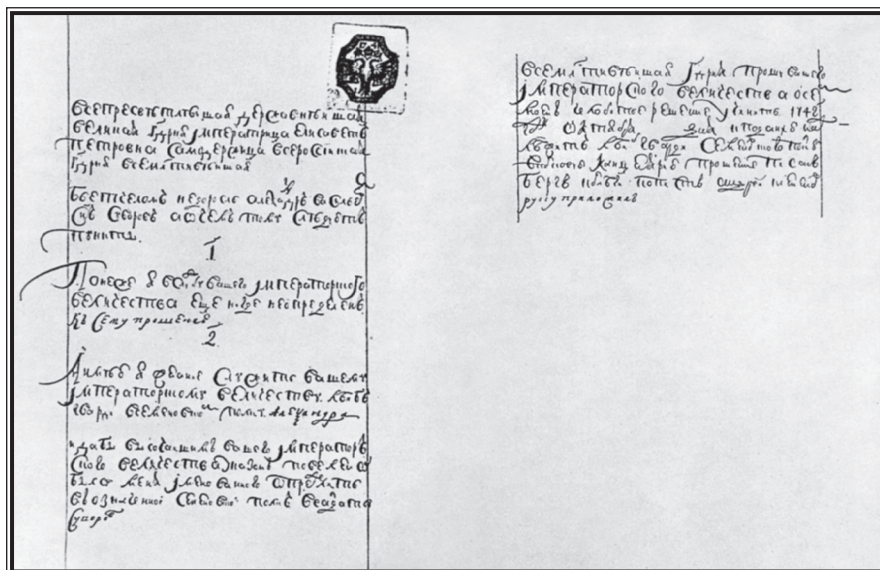 всепресветлѣишая державнѣишая
великая Гдрня імператрица Елисаветъ
Петровна самодержица всеросиская
Гдрня всемлтивѣишая
бьетъ челомъ недоросль александръ васильевъ
снъ Суворов а о чемъ мое следуютъ
пункты.
1
Понеже я в службу вашего імператорского
величества еще нигде не определенъ
къ сему прошению
2
А нынѣ я желаю служить вашему
імператорскому величеству лейбъ
гвардии семеновскомъ полку Александръ
и дабы высочаишимъ вашего імператоръ
ского величества указомъ повелено
было меня имянованного определить
в означенной семеновской полкъ в салдаты
Суворовъ
всемлтивѣишая Гдрня прошу вашего
імператорского величества о се
моемъ челобитье решение учинить 1742
году октября дня к поданию над
лежитъ лейбъ гвардии Семеновского полку
канцелярию прошение писалъ
полку
руку приложилъ